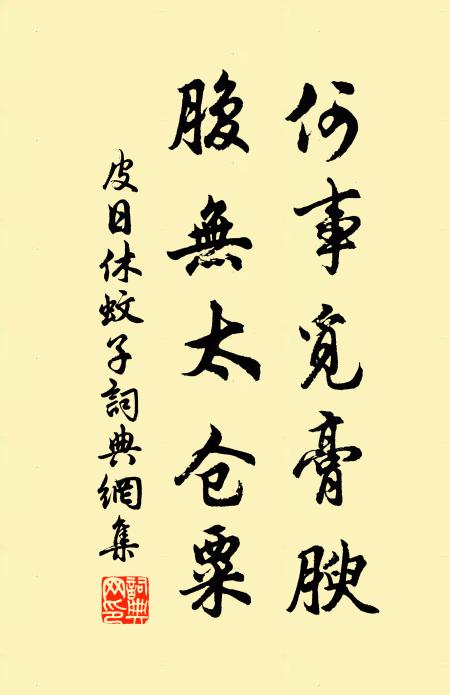 何事觅膏腴
腹無太仓粟
皮日休蚊子詞典網集
詞典
网印